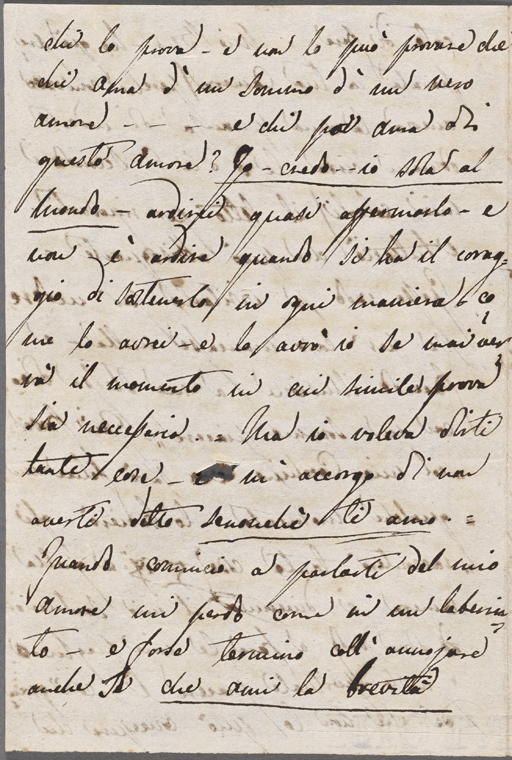 chi lo prova - e non lo può provare che
chi ama d'un sommo d'un vero
amore - - - e chi può ama di
questo amore? Io - credo - io sola al
mondo - ardirei quasi affermarlo - e
non è ardire quando si ha il corag=
gio di sostenerlo in ogni maniera co
me lo avrei - e lo avrò io se mai ver
rà il momento in cui simile prova
sia necessaria = Ma io voleva dirti
tante cose - e mi accorgo di non
averti detto senonchè ti amo =
Quando comincio a parlarti del mio
amore mi perdo come in un laberin
to - e forse termino coll'annojare
anche Te che ami la brevità